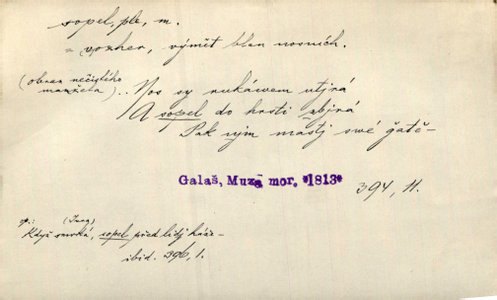 sopel, plu, m.
= vozher, výmět blan nosních.
(obraz nečistého
manžela) .. Nos sy rukáwem utjrá
A sopel do hrsti zbjrá
Pak ným mastj swé gatě –
Galaš, Muza mor. *1813*
394, 11.
op.: (Jurg)
Když smrká, sopel před lidj háže –
ibid. 396, 1.